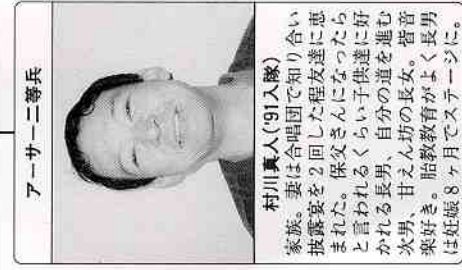 アーサー二等兵
村川真人('91入隊)
家族。妻は合唱団で知り合い
披露宴を2回した程友達に恵
まれた。保父さんになったら
と言われるくらい子供達に好
かれる長男、自分の道を進む
次男、甘えん坊の長女。皆音
楽好き。胎教教育がよく長男
は妊娠8ヶ月でステージに。